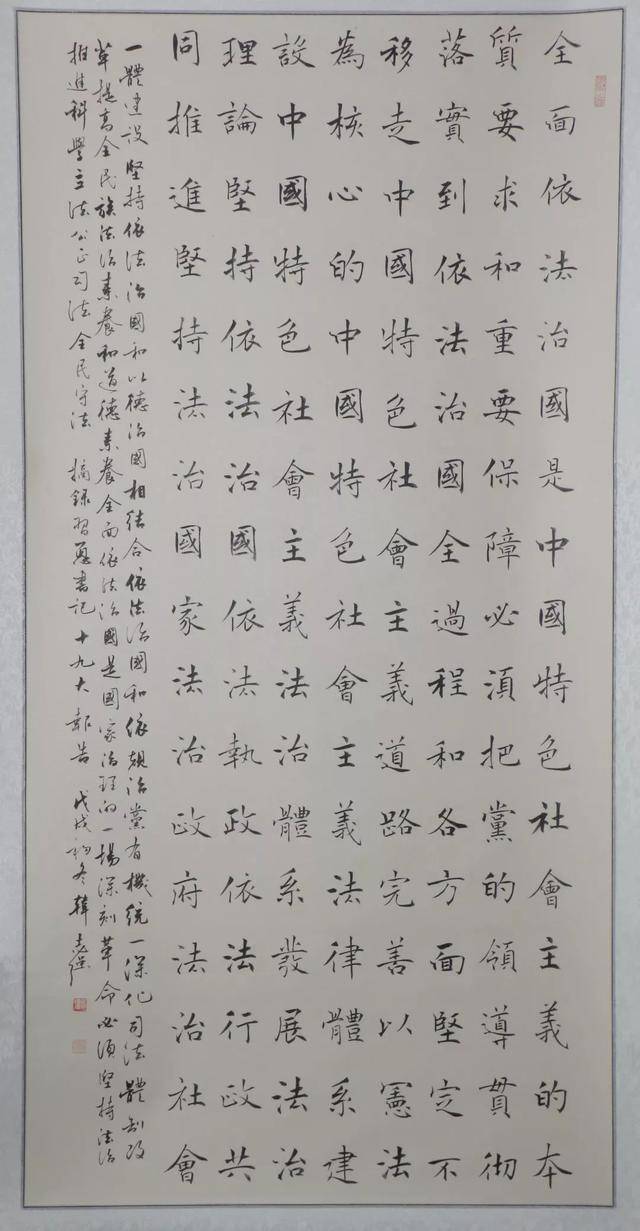 全面依法治國是中國特色社會主義的本
質要求和重要保障必須把黨的領導貫彻
落實到依法治國全過程和各方面堅定不
移走中國特色社會主義道路完善以憲法
為核心的中國特色社會主義法律體系建
設中國特色社會主義法治體系發展法治
理論堅持依法治國依法執政依法行政共
同推進堅持法治國家法治政府法治社會
一體建設堅持依法治國和以德治國相结合依法治國和依規治黨有機統一深化司法體制改
革提高全民族法治素養和道德素養全面依法治國是國家治理的一場深刻革命必須堅持法治
推進科學立法公正司法全民守法 摘錄習總書記十九大報告 戊戌初冬韓